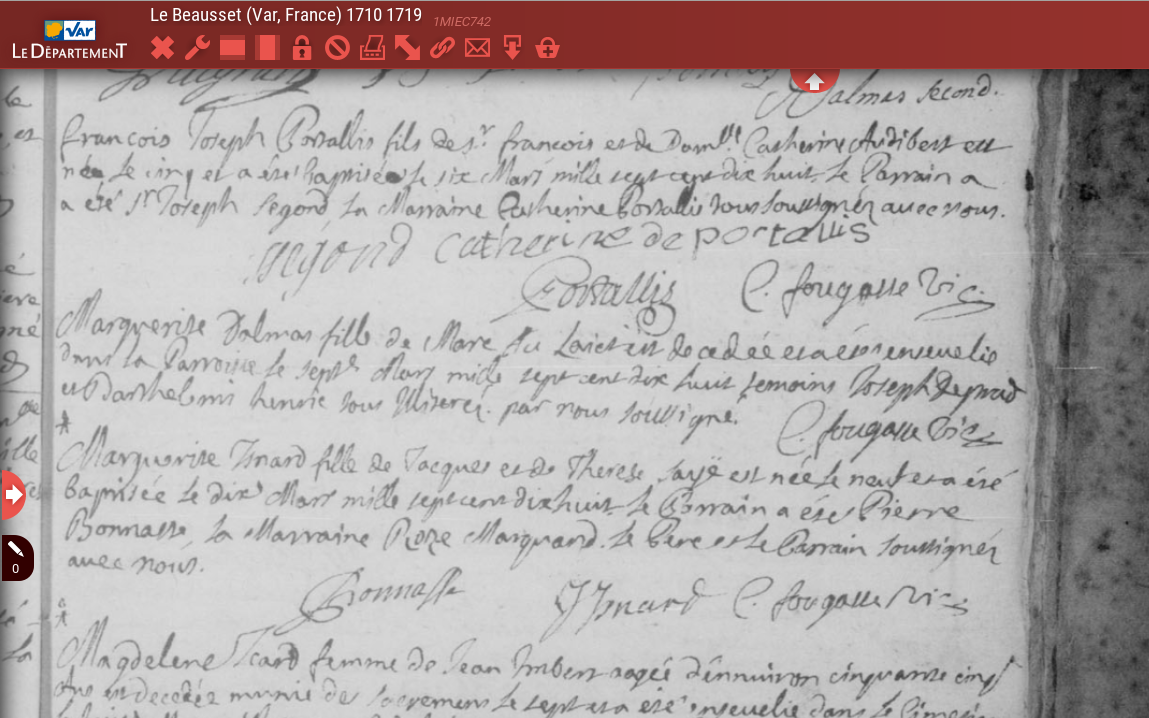 Le Beausset (Var, France) 1710 1719 1MIEC742
VAR
LE DÉPARTEMENT
Dalmas second.
francois Joseph Portallis fils de sr francois et de Damlle Catherine Audibert est
née le cinq et a été baptisée le six Mars mille sept cent dix huit. le Parrain a
a été sr Joseph Segond la Marraine Catherine Portallis tous soussignéz avec nous.
segond Catherine de portallis
Portallis C. fougasse Vic.
Marguerite Dalmas fille de Marc du Lait est decedée et a été ensevelie
dans la Parroisse le sept Mars mille sept cent dix huit temoins Joseph
et Barthelemi par nous soussigné.
C. fougasse Vic.
Marguerite Isnard fille de Jacques et de Therese est née le neuf et a été
baptisée le dix Mars mille sept cent dix huit. le Parrain a été Pierre
Bonnasse, la Marraine Roze Marquand. le Pere et le Parrain soussignéz
avec nous.
Bonnasse JIsnard C. fougasse Vic.
0
Magdelene Icard femme de Jean Imbert aagée d'environ cinquante cinq
ans est decedée munie des sacremens le sept et a été ensevelie dans le Cimetie